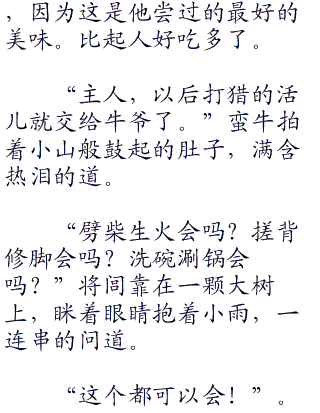 ，因为这是他尝过的最好的
美味。比起人好吃多了。
“主人，以后打猎的活
儿就交给牛爷了。”蛮牛拍
着小山般鼓起的肚子，满含
热泪的道。
“劈柴生火会吗？搓背
修脚会吗？洗碗涮锅会
吗？”将闾靠在一颗大树
上，眯着眼睛抱着小雨，一
连串的问道。
“这个都可以会！”。